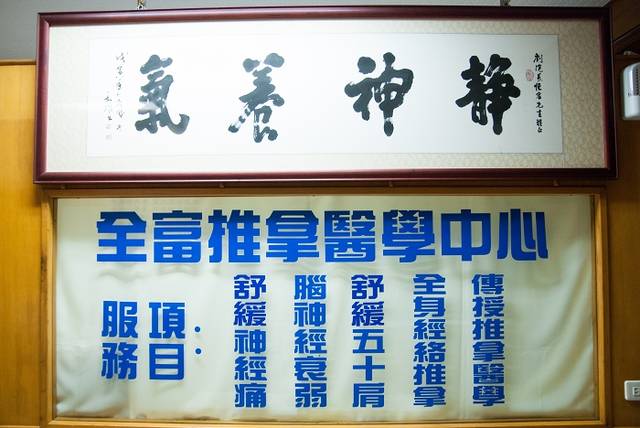 靜神養氣
全富推拿醫學中心
服務
項目:
舒緩神經痛
腦神經衰弱
舒緩五十肩
全身經絡推拿
傳授推拿醫學